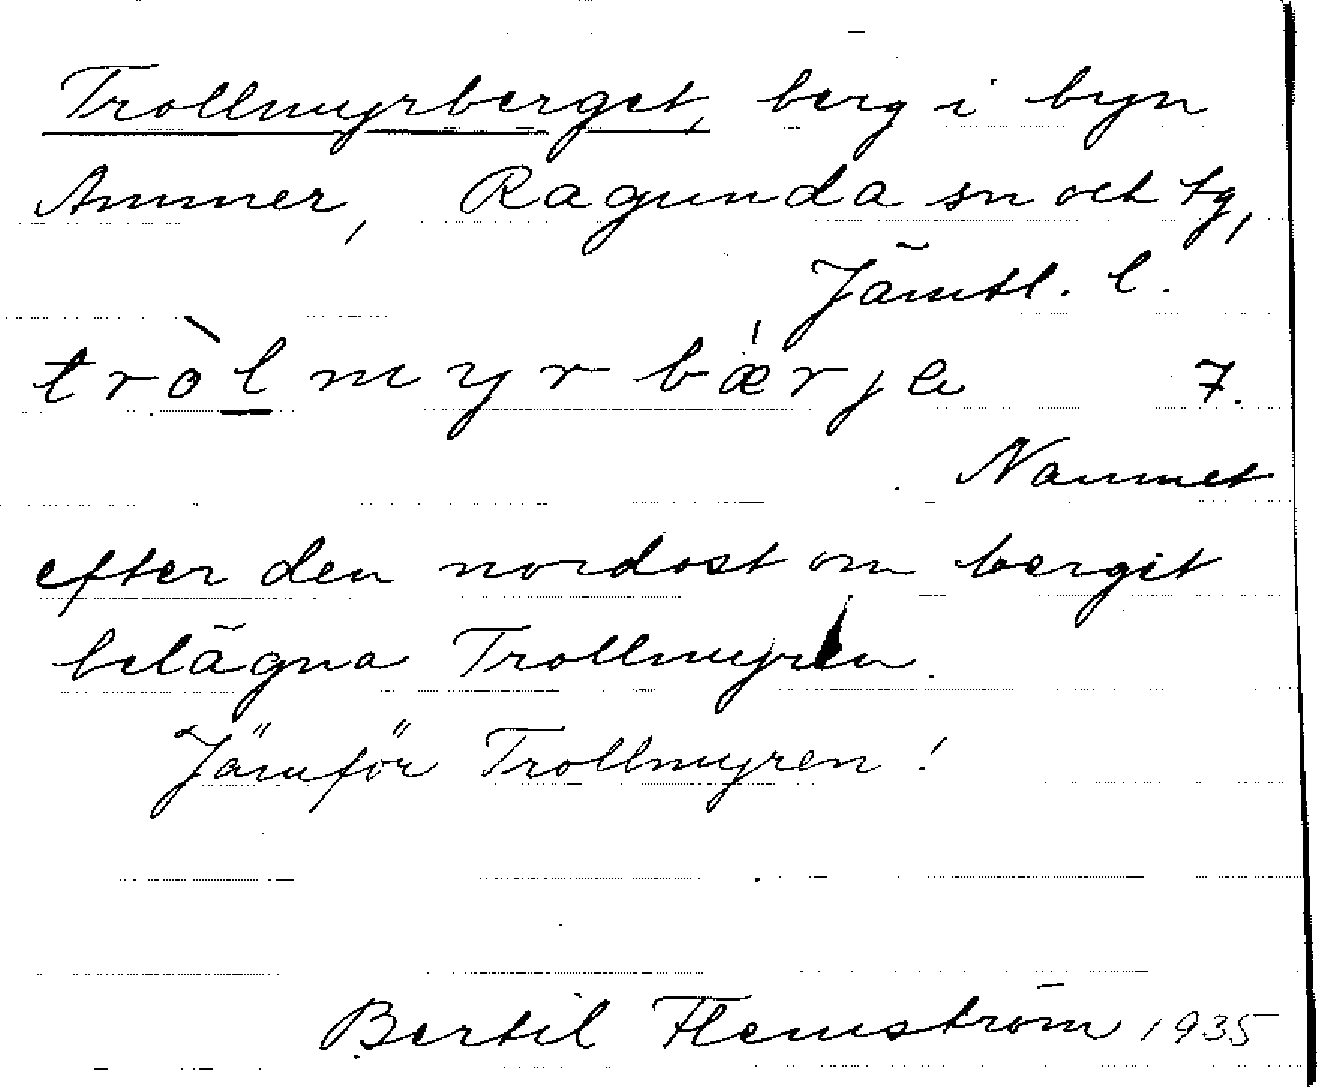 Trollmyrberget, berg i byn
Ammer, Ragunda sn och tg,
Jämtl. l.
tròl̲myrbæ̍rjа 7.
Namnet
efter den nordost om berget
belägna Trollmyren.
Jämför Trollmyren!
Bertil Flemström 1935